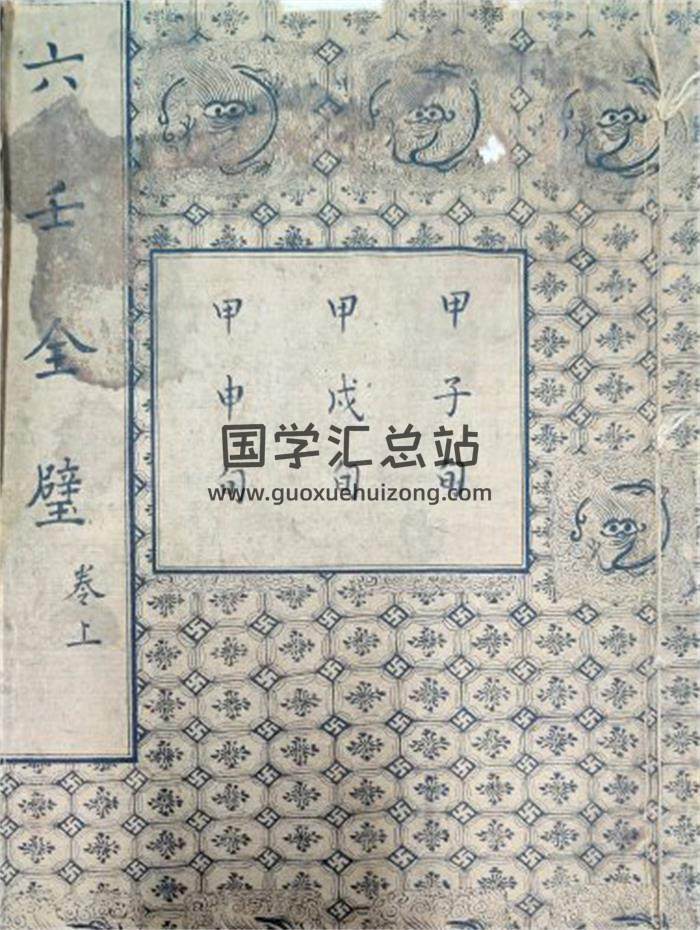 六壬全璧
卷上
甲子旬
甲戌旬
甲申旬
国学汇总站
www.guoxuehuizong.com